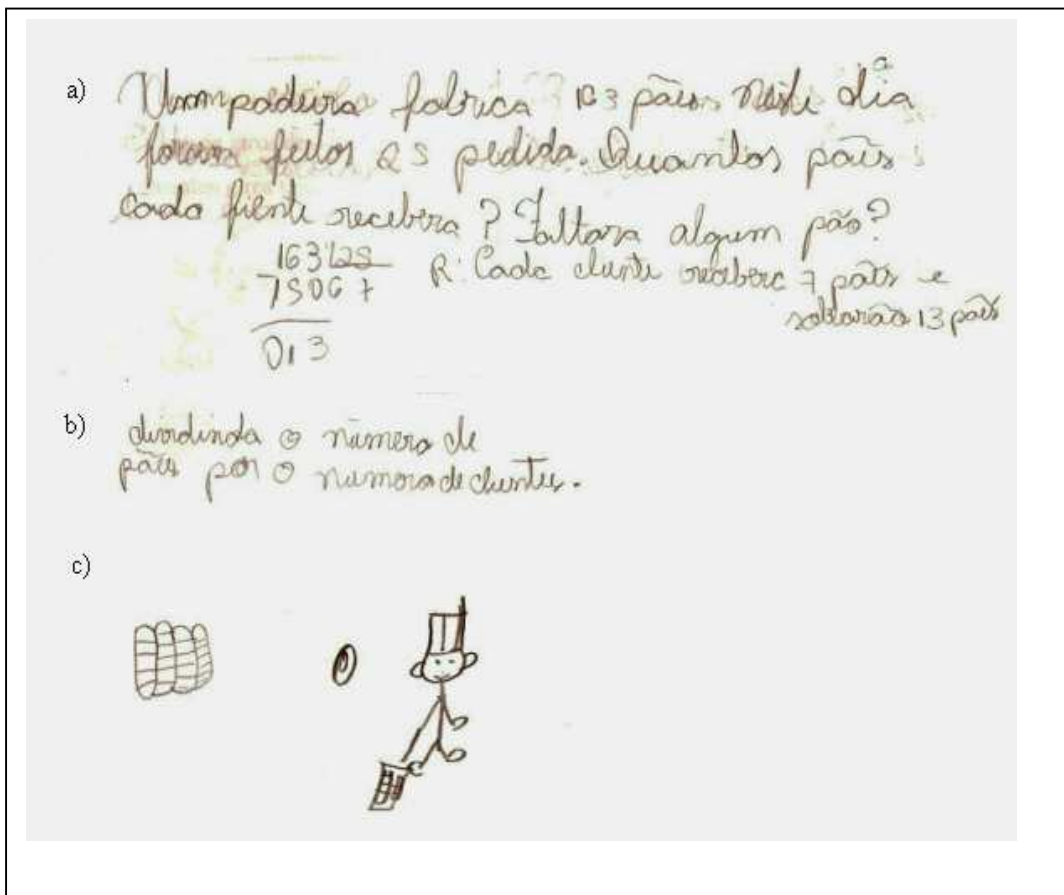 a) Uma padeira fabrica 163 pães neste dia
foram feitos 25 pedida. Quantos pães
cada fiente recebera? Faltara algum pão?
163 25
7506 7
013
R: Cada cliente recebera 7 pães e
sobrarão 13 pães
b) dividindo o número de
pães por o numero de clientes.
c)